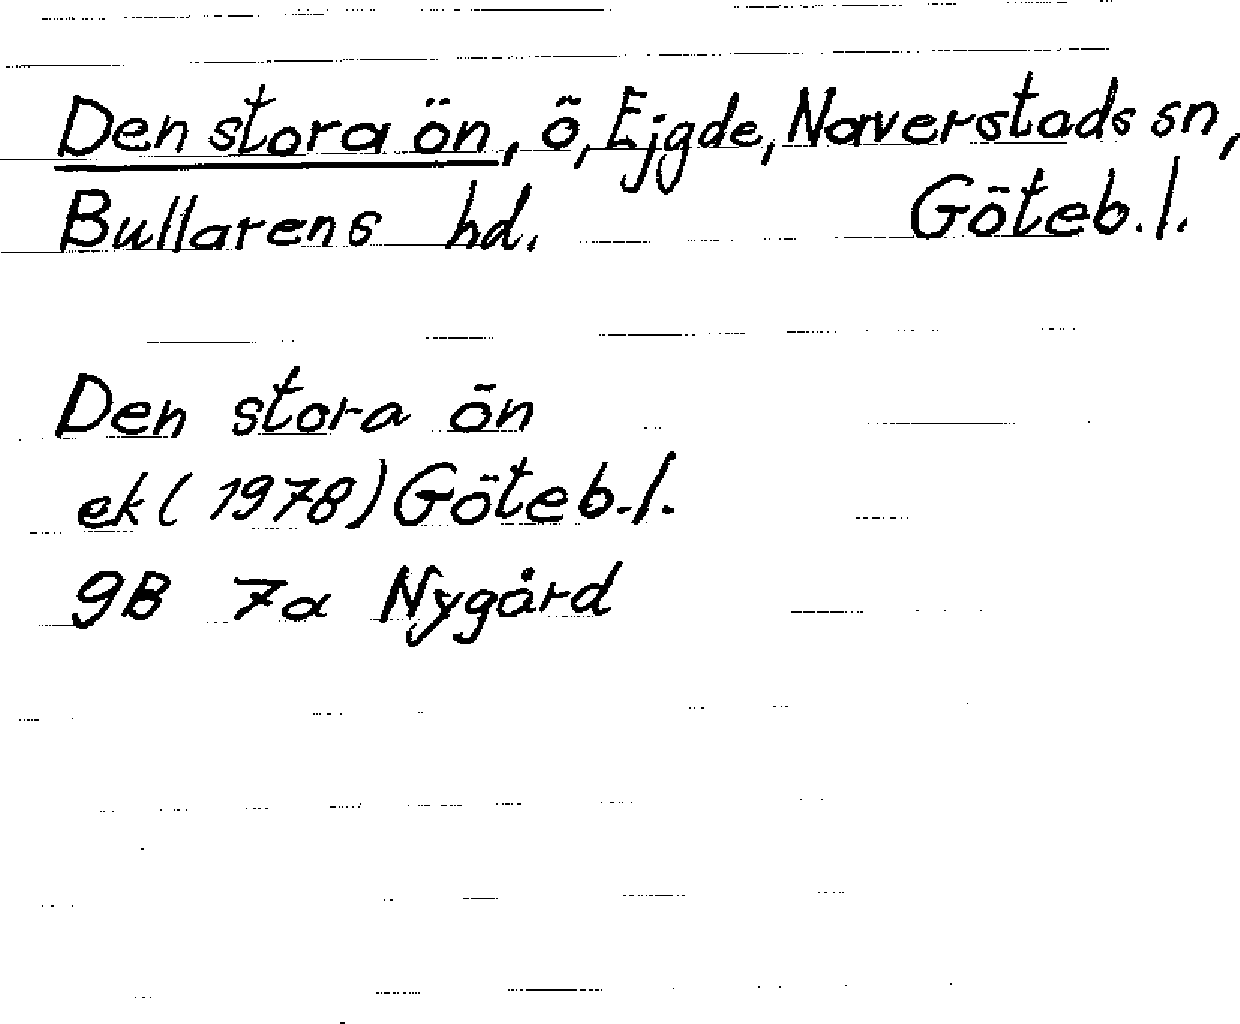 Den stora ön, ö, Ejgde, Naverstads sn,
Bullarens hd. Göteb.l.
Den stora ön
ek (1978) Göteb.l.
9B 7a Nygård